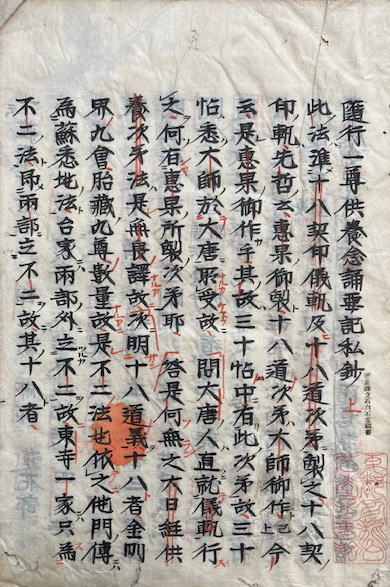 隨行一尊供養念誦要記私鈔 上
此法准十八契印儀軌及十八道次第製之十八契
印軌先哲云惠果御製十八道次第大師御作已上今
云是惠果御作乎其故三十帖中有此次第故三十
帖悉大師於大唐所受故 問大唐人直就儀軌行
之何有惠果所製次第耶 答是何無之大日経供
養次第法是無畏譯故次明十八道義十八者金剛
界九會胎藏九尊數量故是不二法也依之他門傳
為蘇悉地法台家兩部外立不二故東寺一家只為
不二法即兩部之不二故其十八者